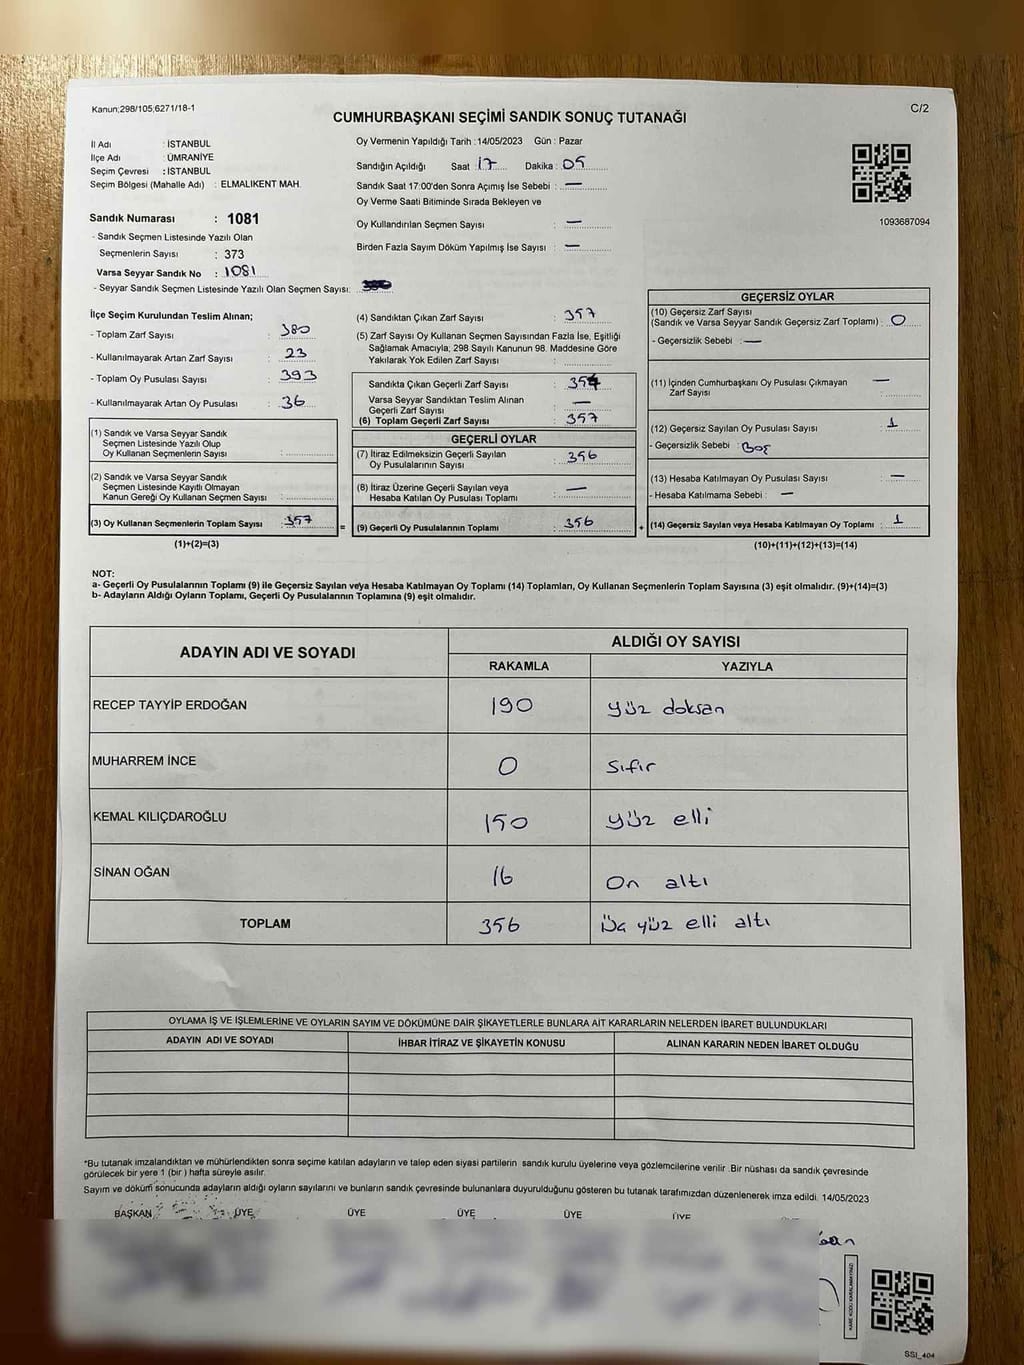 Kanun;298/105;6271/18-1
C/2
CUMHURBAŞKANI SEÇİMİ SANDIK SONUÇ TUTANAĞI
İl Adı : İSTANBUL
İlçe Adı : ÜMRANİYE
Seçim Çevresi : İSTANBUL
Seçim Bölgesi (Mahalle Adı) : ELMALIKENT MAH.
Sandık Numarası : 1081
- Sandık Seçmen Listesinde Yazılı Olan
Seçmenlerin Sayısı : 373
Varsa Seyyar Sandık No : 1081
- Seyyar Sandık Seçmen Listesinde Yazılı Olan Seçmen Sayısı:
Oy Vermenin Yapıldığı Tarih : 14/05/2023 Gün : Pazar
Sandığın Açıldığı Saat : 17 Dakika : 05
Sandık Saat 17:00'den Sonra Açımış İse Sebebi : —
Oy Verme Saati Bitiminde Sırada Bekleyen ve
Oy Kullandırılan Seçmen Sayısı : —
Birden Fazla Sayım Döküm Yapılmış İse Sayısı : —
1093687094
İlçe Seçim Kurulundan Teslim Alınan;
- Toplam Zarf Sayısı : 380
- Kullanılmayarak Artan Zarf Sayısı : 23
- Toplam Oy Pusulası Sayısı : 393
- Kullanılmayarak Artan Oy Pusulası : 36
(1) Sandık ve Varsa Seyyar Sandık
Seçmen Listesinde Yazılı Olup
Oy Kullanan Seçmenlerin Sayısı :
(2) Sandık ve Varsa Seyyar Sandık
Seçmen Listesinde Kayıtlı Olmayan
Kanun Gereği Oy Kullanan Seçmen Sayısı :
(3) Oy Kullanan Seçmenlerin Toplam Sayısı : 357 =
(1)+(2)=(3)
(4) Sandıktan Çıkan Zarf Sayısı : 357
(5) Zarf Sayısı Oy Kullanan Seçmen Sayısından Fazla İse, Eşitliği
Sağlamak Amacıyla; 298 Sayılı Kanunun 98. Maddesine Göre
Yakılarak Yok Edilen Zarf Sayısı :
Sandıkta Çıkan Geçerli Zarf Sayısı : 357
Varsa Seyyar Sandıktan Teslim Alınan
Geçerli Zarf Sayısı : —
(6) Toplam Geçerli Zarf Sayısı : 357
GEÇERLİ OYLAR
(7) İtiraz Edilmeksizin Geçerli Sayılan
Oy Pusulalarının Sayısı : 356
(8) İtiraz Üzerine Geçerli Sayılan veya
Hesaba Katılan Oy Pusulası Toplamı : —
(9) Geçerli Oy Pusulalarının Toplamı : 356 +
GEÇERSİZ OYLAR
(10) Geçersiz Zarf Sayısı
(Sandık ve Varsa Seyyar Sandık Geçersiz Zarf Toplamı) : 0
- Geçersizlik Sebebi : —
(11) İçinden Cumhurbaşkanı Oy Pusulası Çıkmayan —
Zarf Sayısı :
(12) Geçersiz Sayılan Oy Pusulası Sayısı : 1
- Geçersizlik Sebebi : Boş
(13) Hesaba Katılmayan Oy Pusulası Sayısı : —
- Hesaba Katılmama Sebebi : —
(14) Geçersiz Sayılan veya Hesaba Katılmayan Oy Toplamı : 1
(10)+(11)+(12)+(13)=(14)
NOT:
a- Geçerli Oy Pusulalarının Toplamı (9) ile Geçersiz Sayılan ve/ya Hesaba Katılmayan Oy Toplamı (14) Toplamları, Oy Kullanan Seçmenlerin Toplam Sayısına (3) eşit olmalıdır. (9)+(14)=(3)
b- Adayların Aldığı Oyların Toplamı, Geçerli Oy Pusulalarının Toplamına (9) eşit olmalıdır.
ADAYIN ADI VE SOYADI
ALDIĞI OY SAYISI
RAKAMLA YAZIYLA
RECEP TAYYİP ERDOĞAN 190 yüz doksan
MUHARREM İNCE 0 Sıfır
KEMAL KILIÇDAROĞLU 150 yüz elli
SİNAN OĞAN 16 On altı
TOPLAM 356 üç yüz elli altı
OYLAMA İŞ VE İŞLEMLERİNE VE OYLARIN SAYIM VE DÖKÜMÜNE DAİR ŞİKAYETLERLE BUNLARA AİT KARARLARIN NELERDEN İBARET BULUNDUKLARI
ADAYIN ADI VE SOYADI İHBAR İTİRAZ VE ŞİKAYETİN KONUSU ALINAN KARARIN NEDEN İBARET OLDUĞU
*Bu tutanak imzalandıktan ve mühürlendikten sonra seçime katılan adayların ve talep eden siyasi partilerin sandık kurulu üyelerine veya gözlemcilerine verilir .Bir nüshası da sandık çevresinde
görülecek bir yere 1 (bir ) hafta süreyle asılır.
Sayım ve döküm sonucunda adayların aldığı oyların sayılarını ve bunların sandık çevresinde bulunanlara duyurulduğunu gösteren bu tutanak tarafımızdan düzenlenerek imza edildi. 14/05/2023
BAŞKAN ÜYE ÜYE ÜYE ÜYE ÜYE
KARE KODU KARALAMAYINIZ!
SSI_404